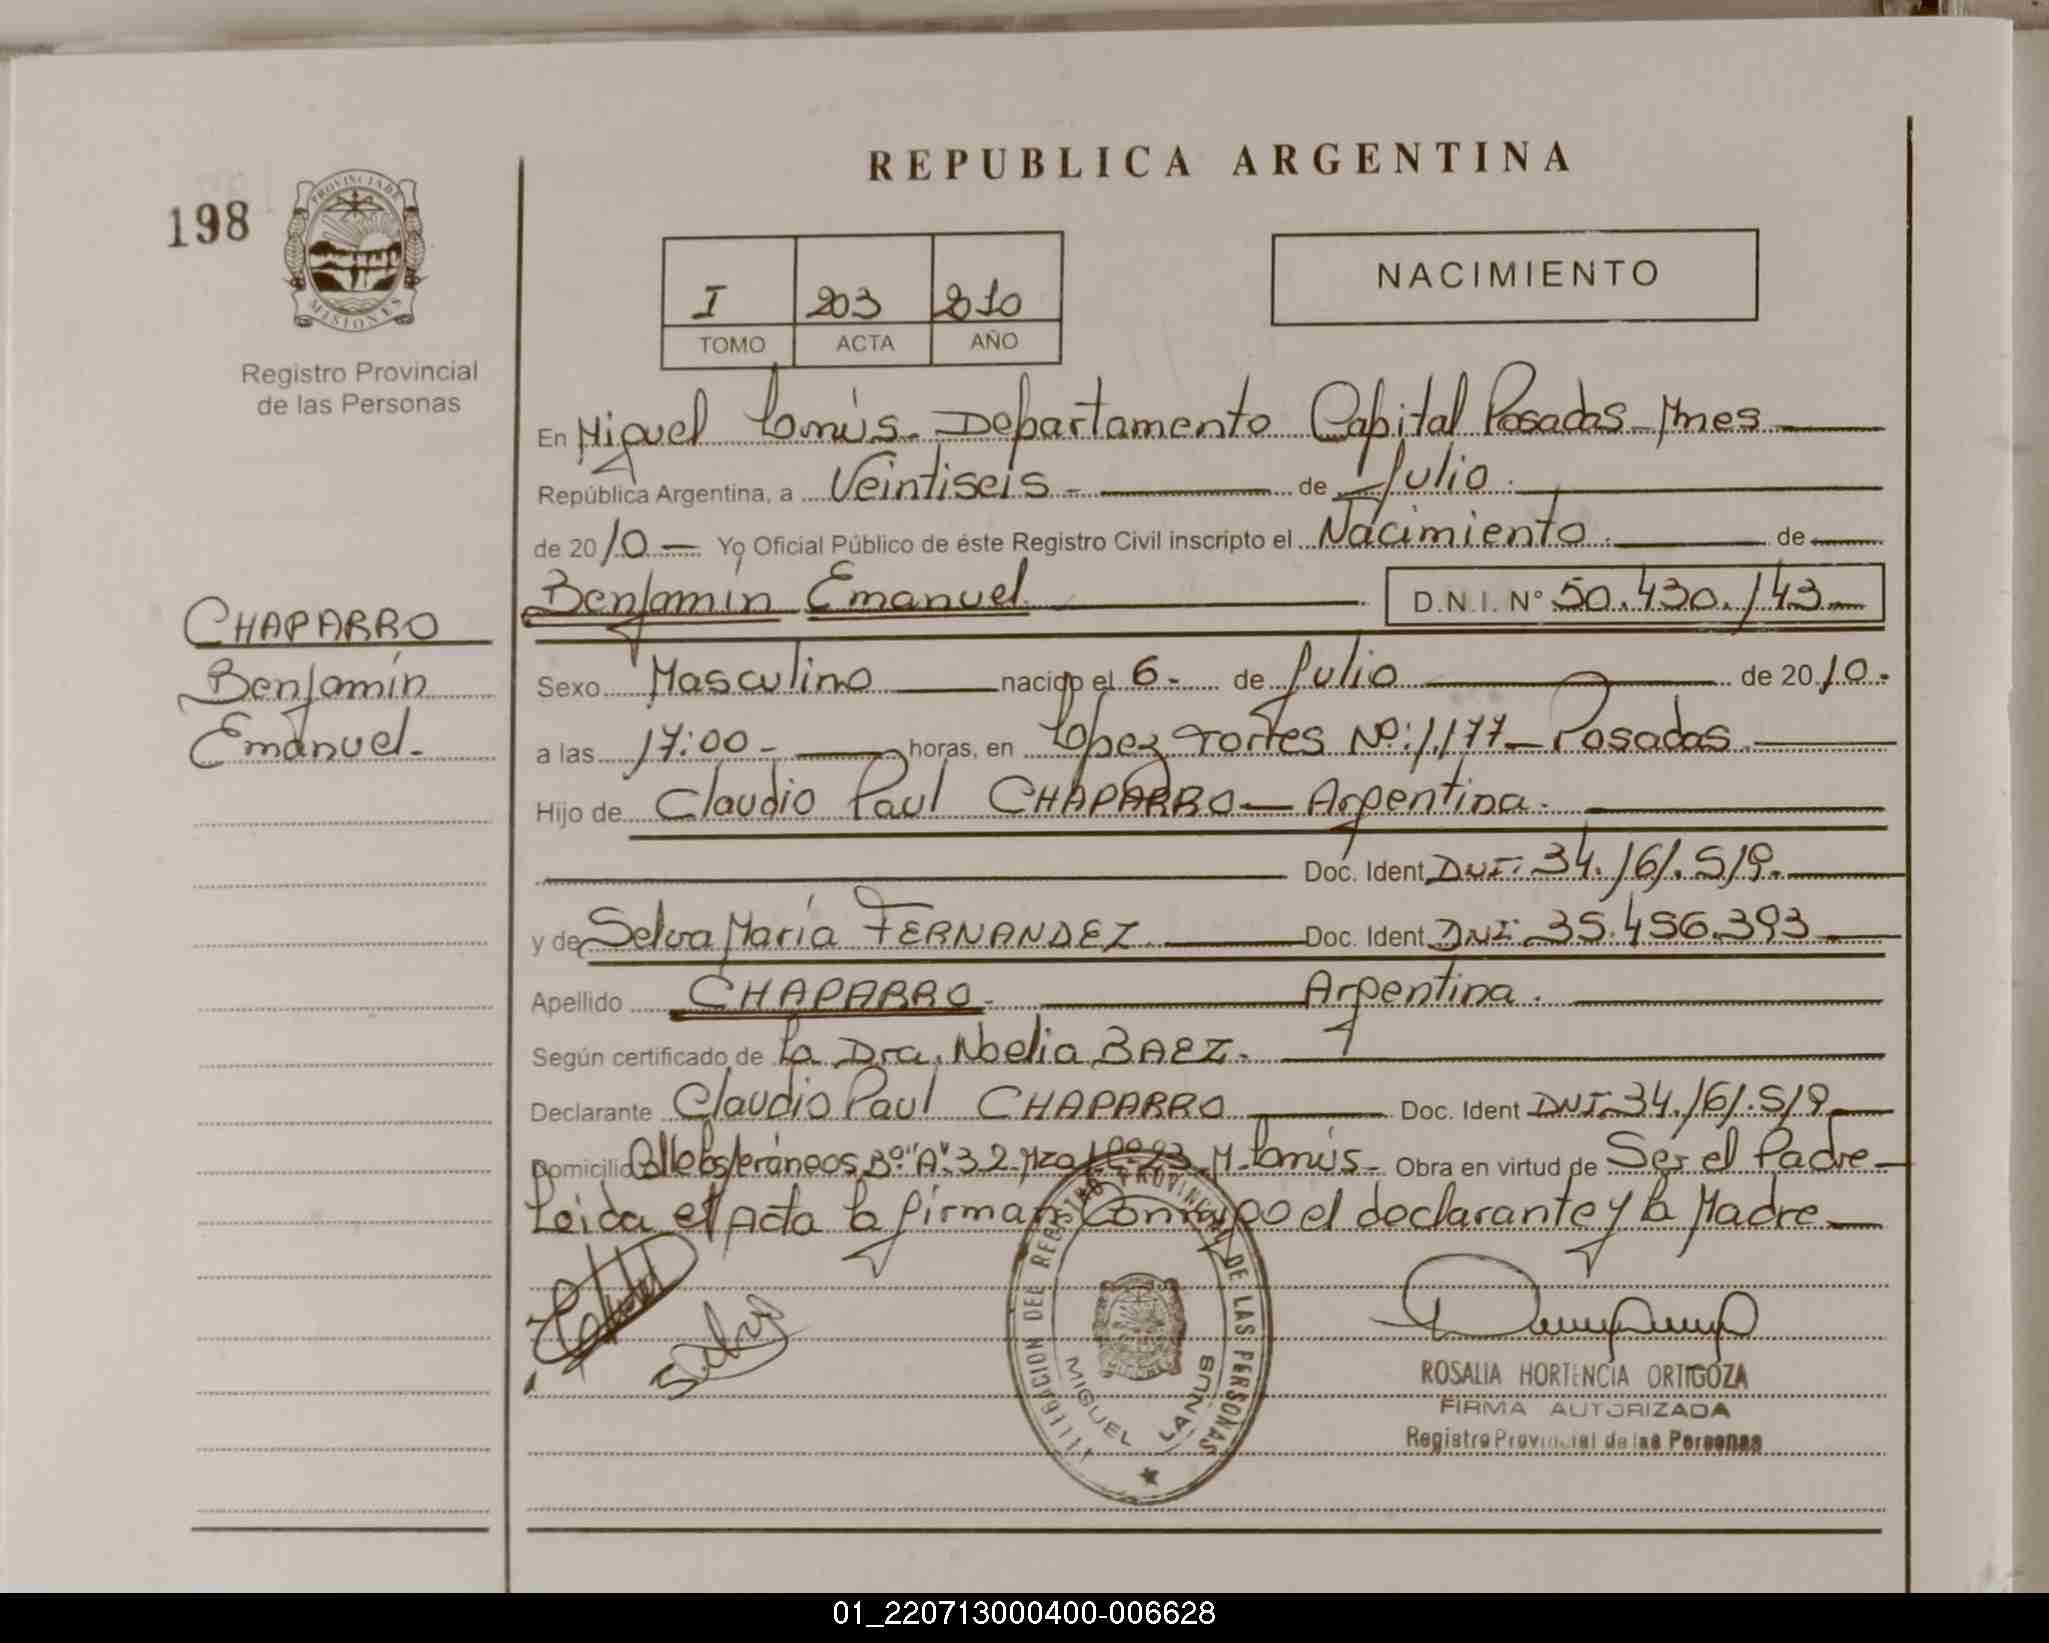 REPUBLICA ARGENTINA
198
PROVINCIA DE
MISIONES
Registro Provincial
de las Personas
I 203 2010
TOMO ACTA AÑO
NACIMIENTO
En Miguel Lanús - Departamento Capital Posadas - Mnes
República Argentina, a Veintiseis - de Julio.
de 2010 - Yo Oficial Público de éste Registro Civil inscripto el Nacimiento. de
Benjamín Emanuel D.N.I. N° 50.430.143
CHAPARRO
Benjamín
Emanuel.-
Sexo Masculino nacido el 6- de Julio de 2010.
a las 17:00 - horas, en López Torres Nº:1.177 - Posadas
Hijo de Claudio Paul CHAPARRO - Argentina.
Doc. Ident. DNI: 34.161.519.
y de Selva María FERNANDEZ Doc. Ident. DNI: 35.456.393
Apellido CHAPARRO. Argentina.
Según certificado de la Dra. Noelia BAEZ.
Declarante Claudio Paul CHAPARRO Doc. Ident DNI. 34.161.519
Domicilio Bº "A" 3.2 Mza M. Lanús - Obra en virtud de Ser el Padre
Leida el Acta la firman Conmigo el declarante y la Madre
DELEGACION DEL REGISTRO PROVINCIAL DE LAS PERSONAS
MIGUEL LANUS
ROSALIA HORTENCIA ORTIGOZA
FIRMA AUTORIZADA
Registro Provincial de las Personas
01_220713000400-006628